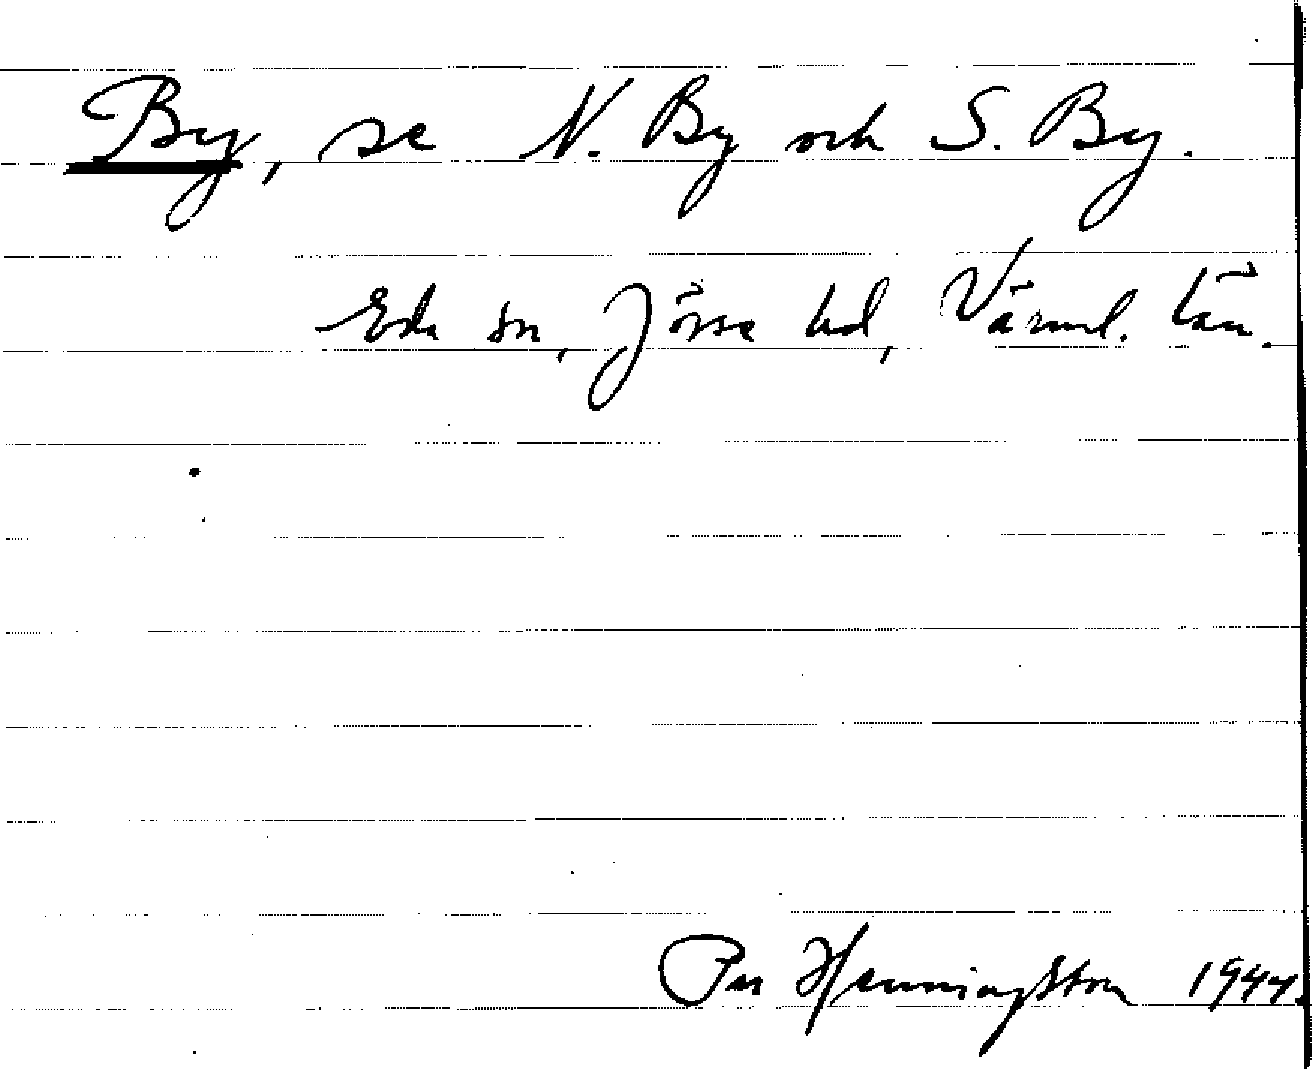 By, se N. By och S. By.
Eda sn, Jösse hd, Värml. län.
Per Henningsson 1944.